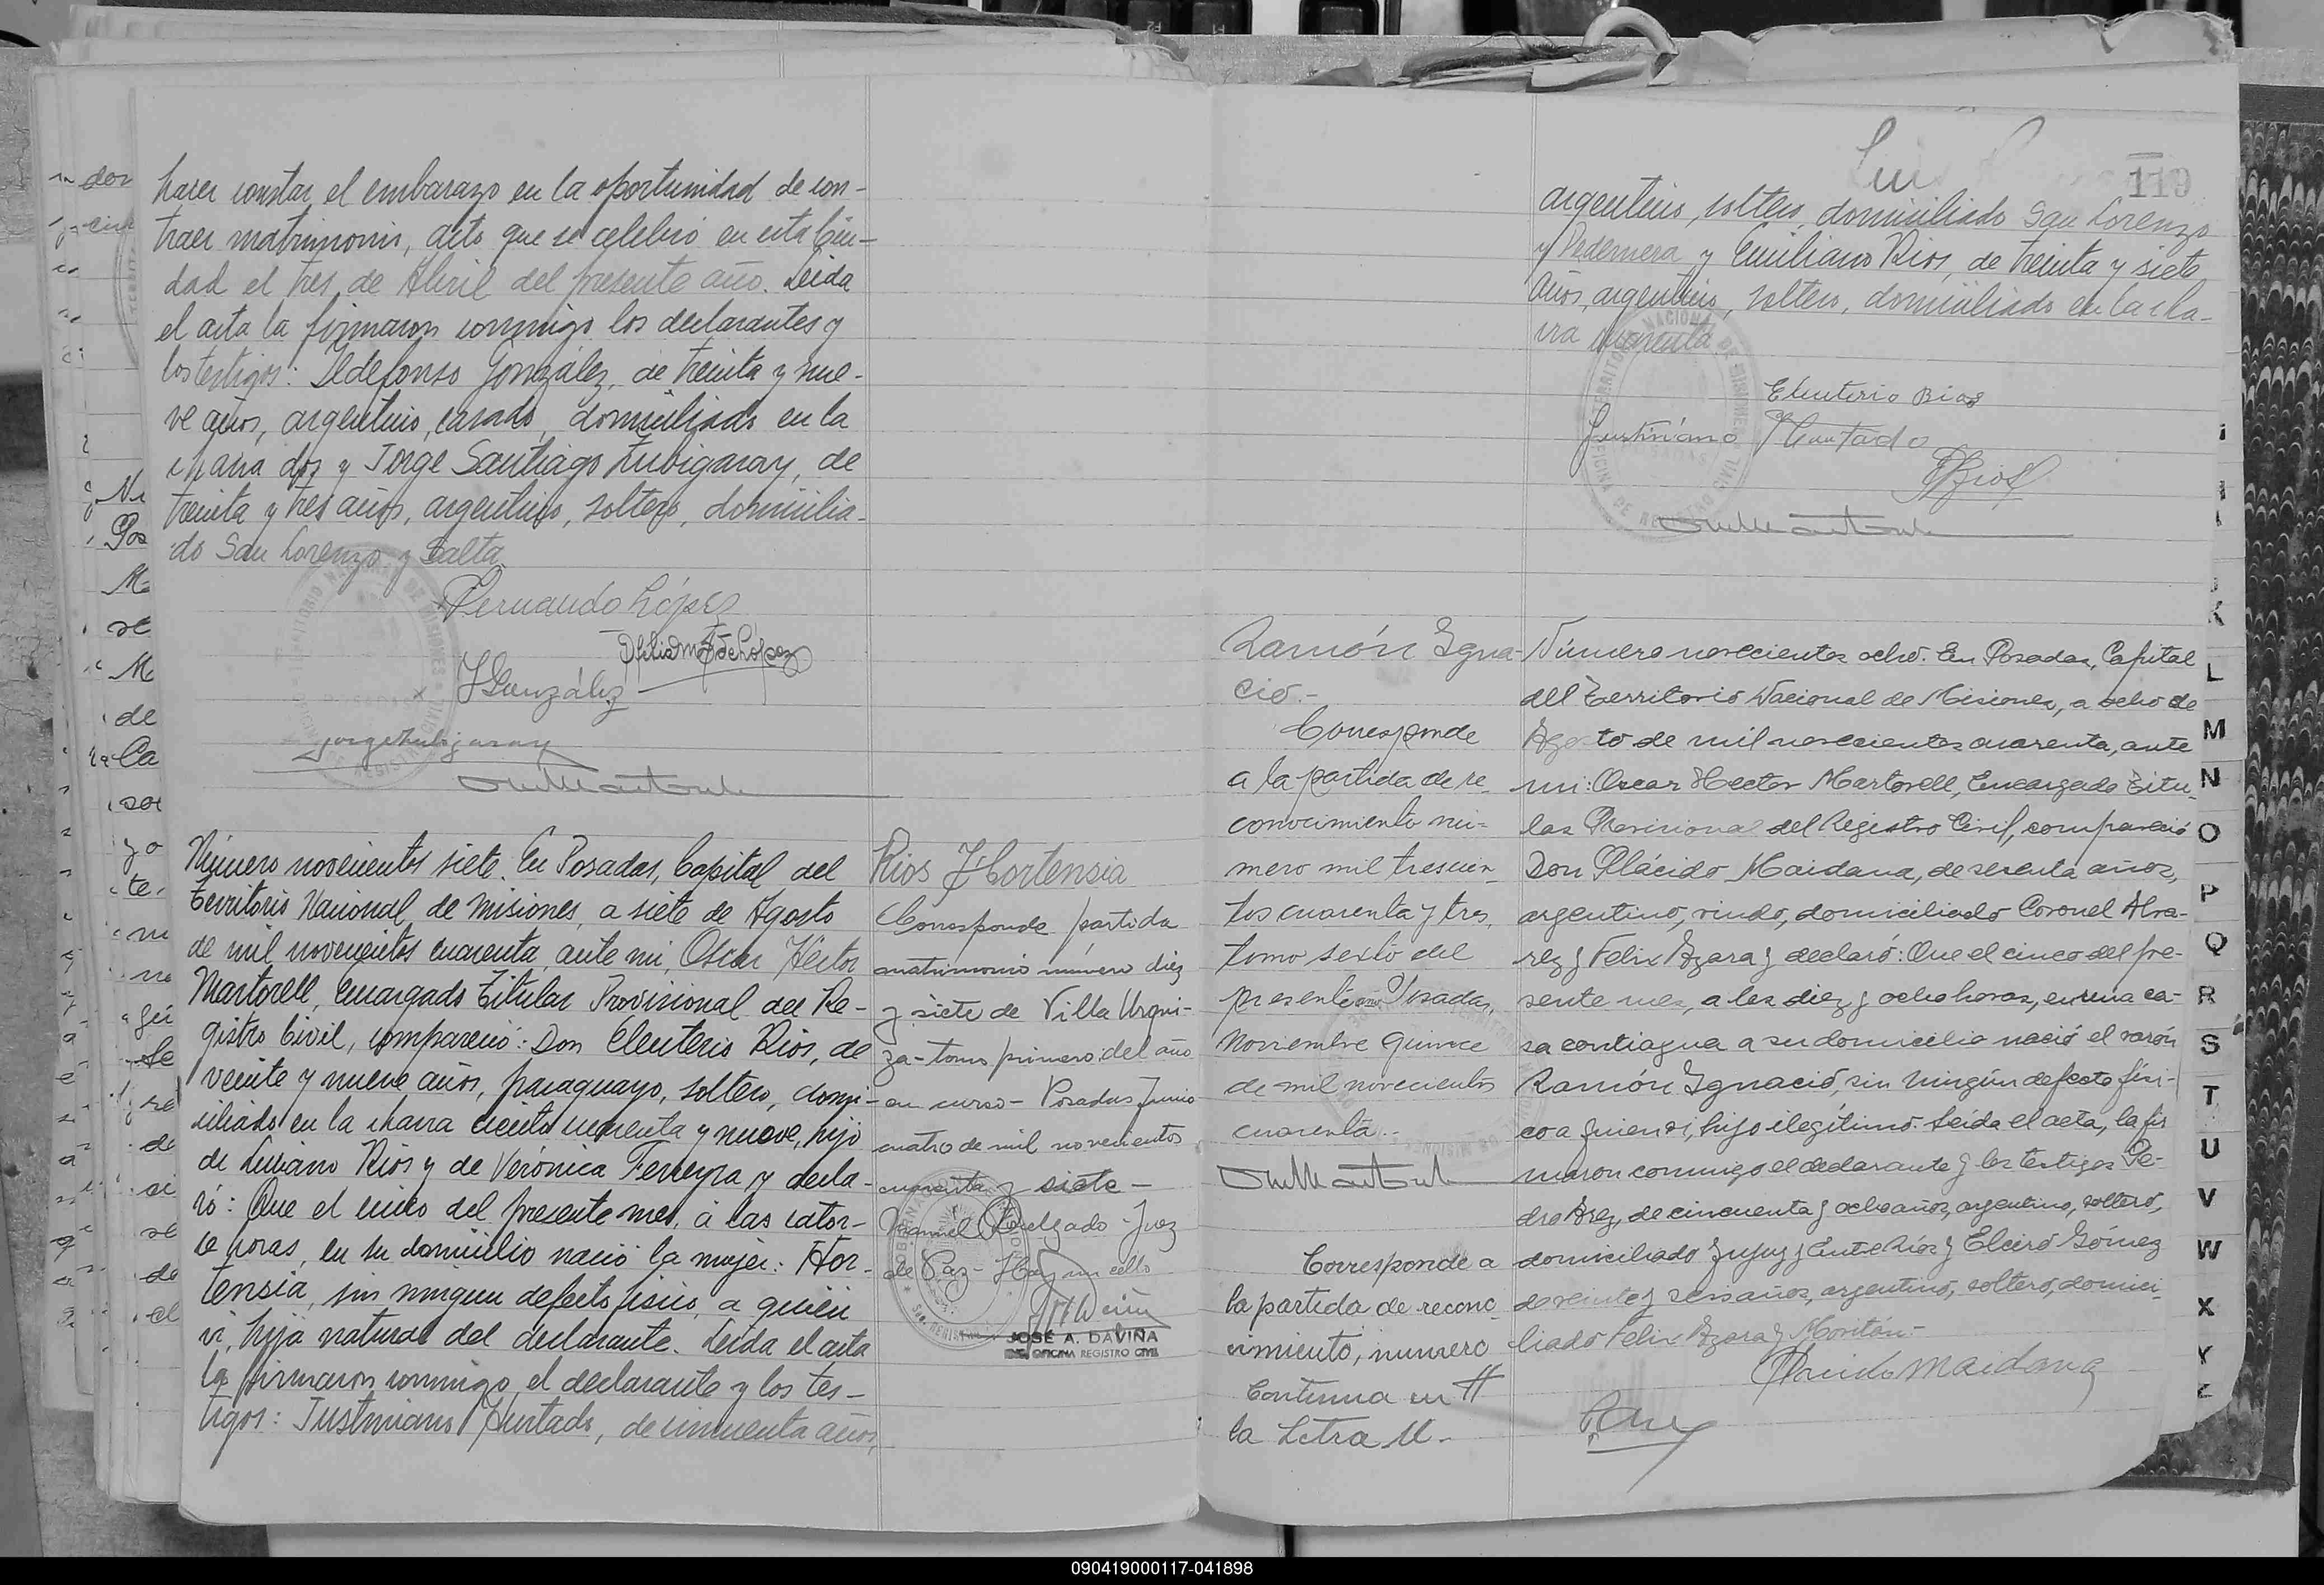 hacer constar el embarazo en la oportunidad de con-
traer matrimonio, acto que se celebró en esta Ciu-
dad el tres de Abril del presente año. Leida
el acta la firmaron conmigo los declarantes y
los testigos: Ildefonso González, de treinta y nue-
ve años, argentino, casado, domiciliado en la
chacra dos y Jorge Santiago Zubigaray, de
treinta y tres años, argentino, soltero, domicilia-
do San Lorenzo y Salta
Fernando López
de López
González
Jorge Zubigaray
Número novecientos siete. En Posadas, Capital del
Territorio Nacional de Misiones, a siete de Agosto
de mil novecientos cuarenta, ante mi, Oscar Héctor
Martorell, Encargado Titular Provisional del Re-
gistro Civil, compareció: Don Eleuterio Rios, de
veinte y nueve años, paraguayo, soltero, domi-
ciliado en la chacra ciento cuarenta y nueve, hijo
de Luciano Rios y de Verónica Ferreyra y decla-
ró: Que el cinco del presente mes, a las cator-
ce horas, en su domicilio nació la mujer: Hor-
tensia, sin ningun defecto fisico, a quien
vi, hija natural del declarante. Leida el acta
la firmaron conmigo el declarante y los tes-
tigos: Justiniano Hurtado, de cincuenta años,
Rios Hortensia
Corresponde partida
matrimonio número diez
y siete de Villa Urqui-
za - tomo primero del año
en curso - Posadas Junio
cuatro de mil novecientos
cuarenta y siete -
Manuel Delgado - Juez
de Paz - Hay un sello
JOSÉ A. DAVIÑA
OFICINA REGISTRO CIVIL
119
argentino, soltero, domiciliado San Lorenzo
y Pedernera y Emiliano Rios, de treinta y siete
años, argentino, soltero, domiciliado en la cha-
cra cuarenta
Eleuterio Rios
Justiniano Hurtado
Rios
Ramón Igna-
cio.-
Corresponde
a la partida de re-
conocimiento nú-
mero mil trescien-
tos cuarenta y tres,
tomo sexto del
presente año. Posadas,
Noviembre quince
de mil novecientos
cuarenta.-
Corresponde a
la partida de recono-
cimiento, numero
Continua en #
la Letra M.-
Número novecientos ocho. En Posadas, Capital
del Territorio Nacional de Misiones, a ocho de
Agosto de mil novecientos cuarenta, ante
mi: Oscar Hector Martorell, Encargado Titu-
lar Provisional del Registro Civil, compareció
Don Plácido Maidana, de sesenta años,
argentino, viudo, domiciliado Coronel Alva-
rez y Felix Azara y declaró: Que el cinco del pre-
sente mes, a las diez y ocho horas, en una ca-
sa contiagua a su domicilio nació el varón
Ramón Ignació, sin ningún defecto físi-
co a quien vi, hijo ilegítimo. Leida el acta, la fir
maron conmigo el declarante y los testigos Pe-
dro Arez, de cincuenta y ocho años, argentino, soltero,
domiciliado Jujuy y Entre Ríos y Elciro Gómez
de veinte y seis años, argentino, soltero, domici-
liado Felix Azara y Moritán.-
Placido Maidana
K
L
M
N
O
P
Q
R
S
T
U
V
W
X
Y
Z
090419000117-041898